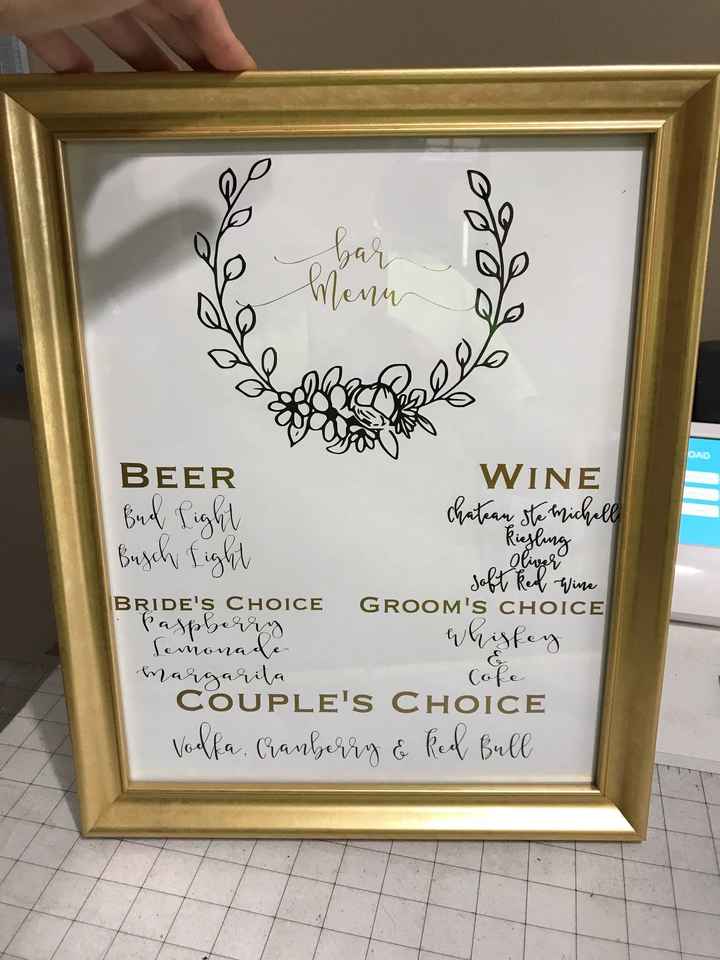 bar
Menu
BEER
Bud Light
Busch Light
WINE
Chateau Ste Michelle
Riesling
Oliver
Soft Red Wine
BRIDE'S CHOICE
Raspberry
Lemonade
Margarita
GROOM'S CHOICE
Whiskey
&
Coke
COUPLE'S CHOICE
Vodka, Cranberry & Red Bull
OAD